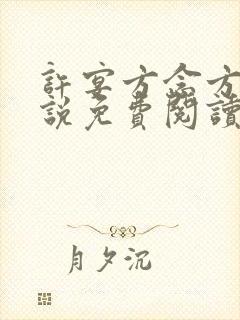 許宴方念方
說免費閱讀
月夕沉